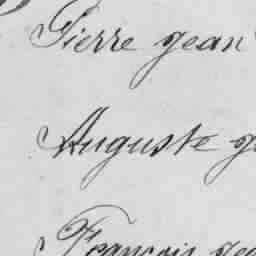 Pierre jean
Auguste
François